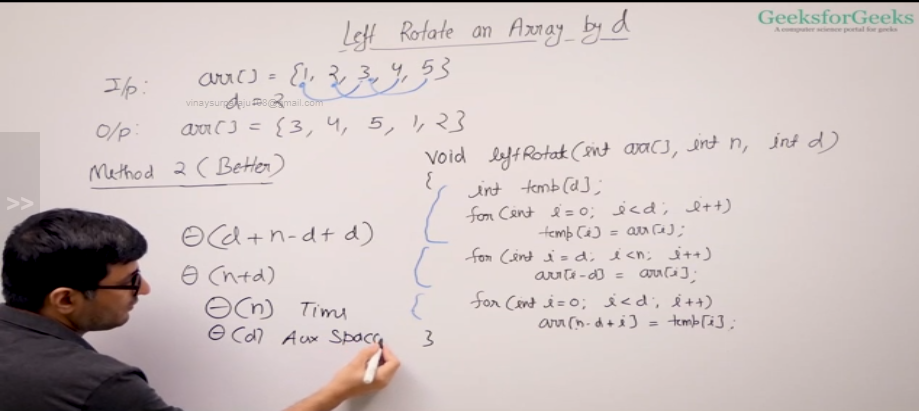 Left Rotate an Array by d
GeeksforGeeks
A computer science portal for geeks
I/p: arr[] = {1, 2, 3, 4, 5}
d = 2
O/p: arr[] = {3, 4, 5, 1, 2}
Method 2 (Better)
Θ(d + n - d + d)
Θ(n+d)
Θ(n) Time
Θ(d) Aux Space
void leftRotat(int arr[], int n, int d)
{
int temp[d];
for(int i=0; i<d; i++)
temp[i] = arr[i];
for(int i=d; i<n; i++)
arr[i-d] = arr[i];
for(int i=0; i<d; i++)
arr[n-d+i] = temp[i];
}
>>